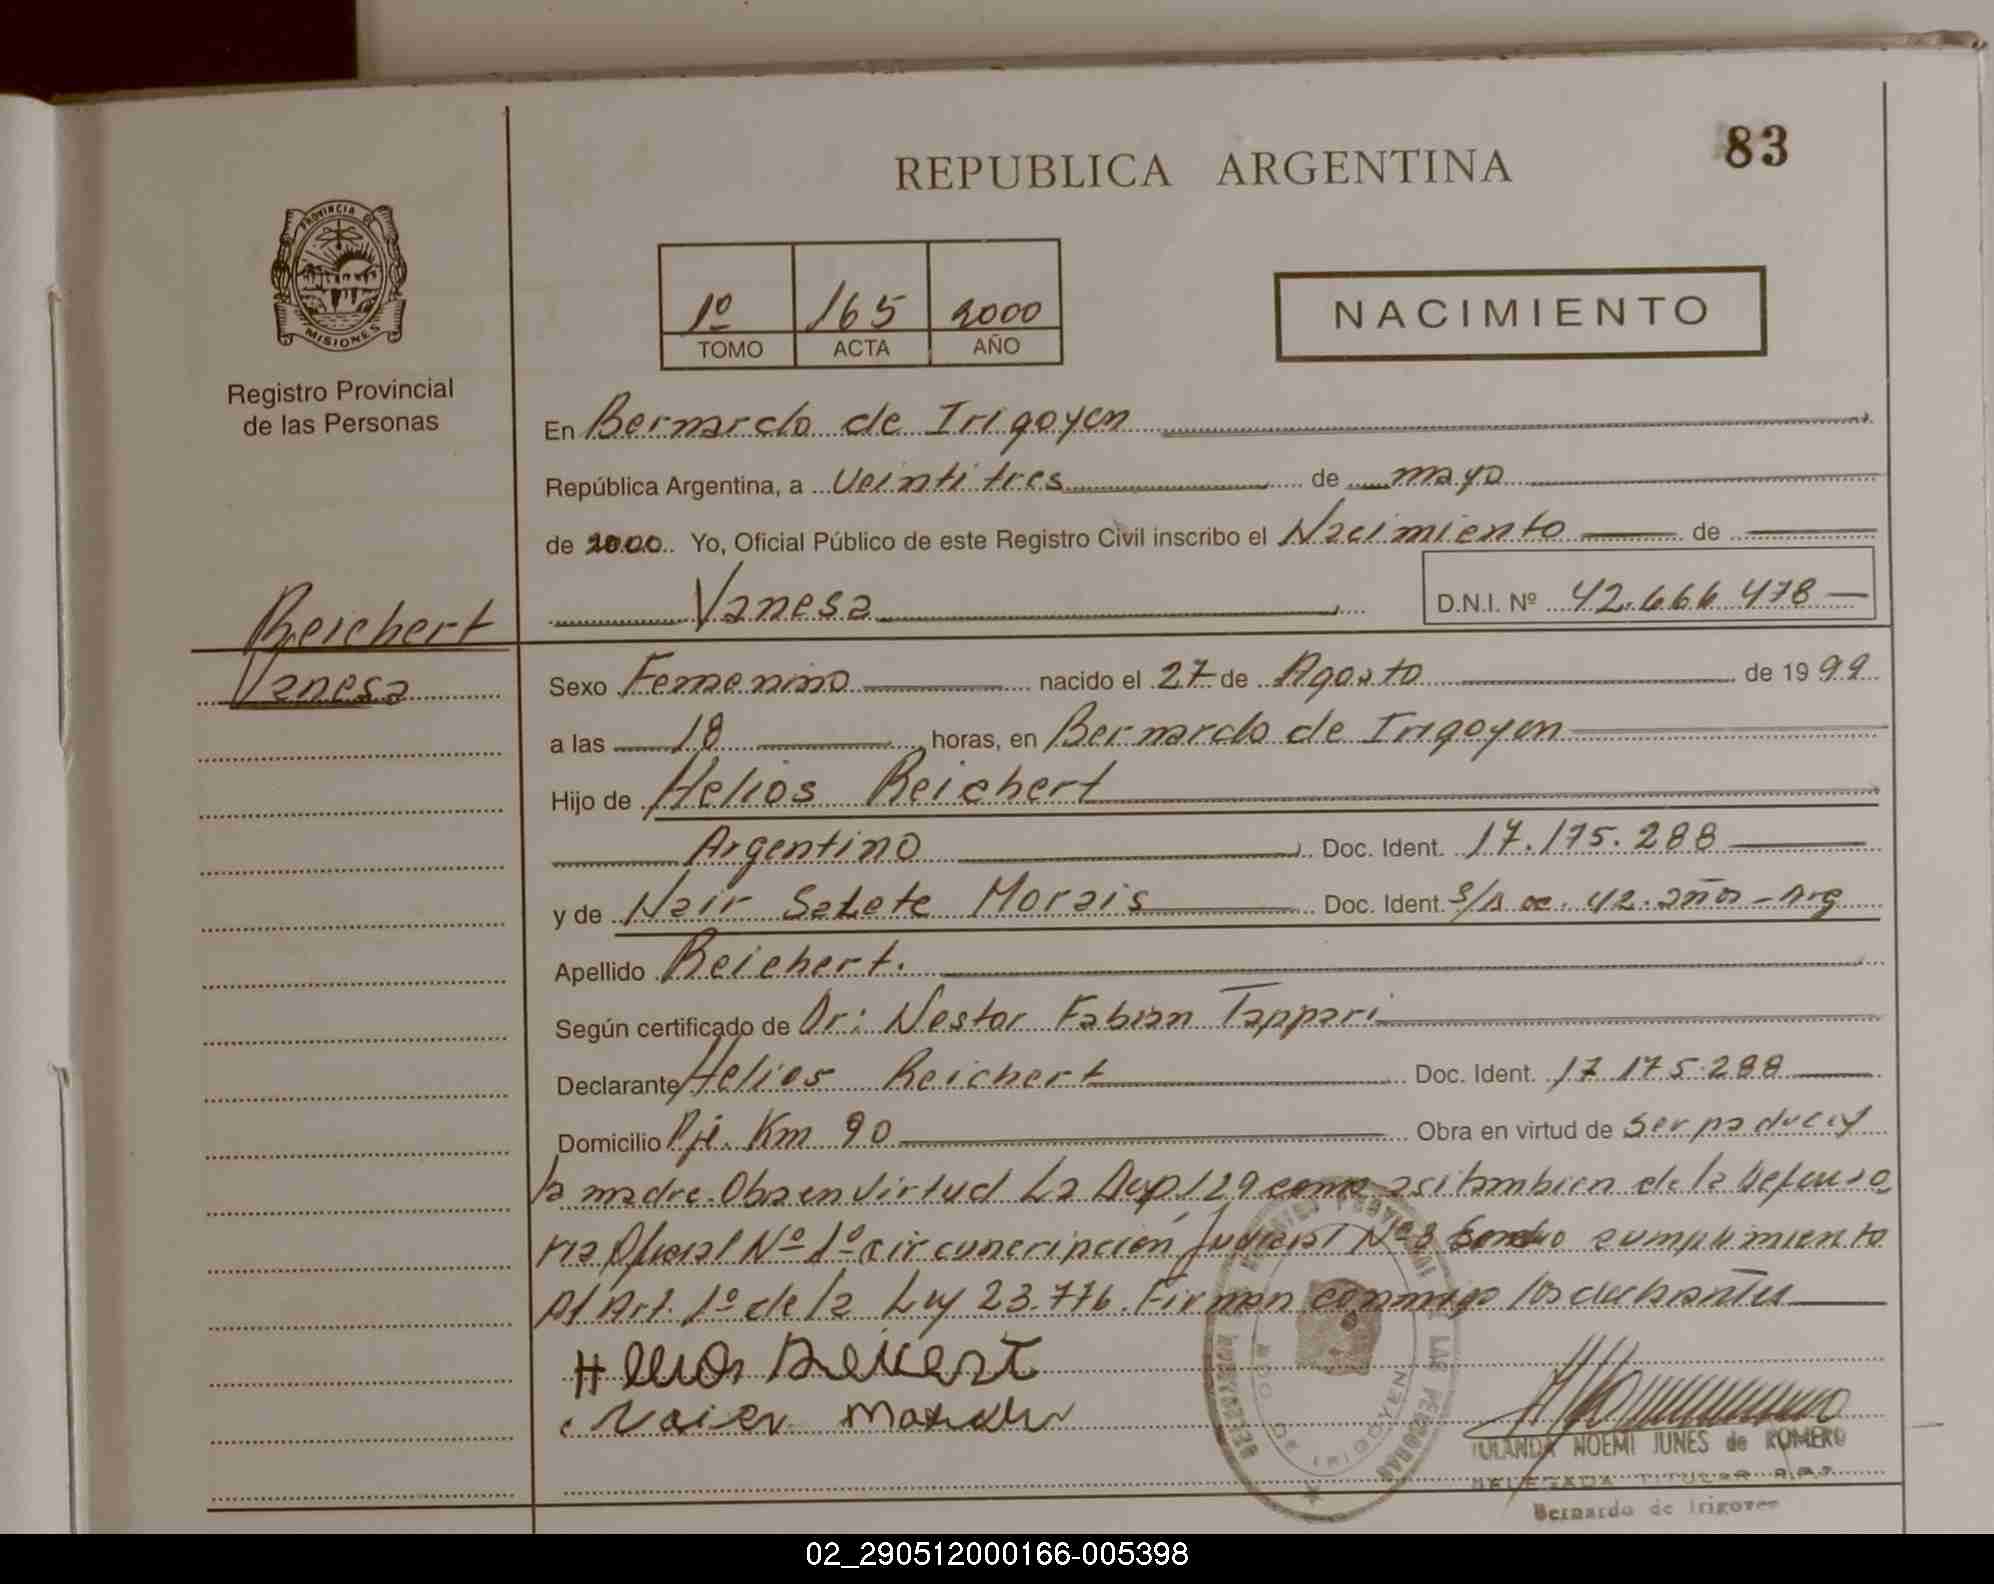 83
REPUBLICA ARGENTINA
PROVINCIA DE
MISIONES
Registro Provincial
de las Personas
1º 165 2000
TOMO ACTA AÑO
NACIMIENTO
En Bernardo de Irigoyen
República Argentina, a Veintitres de mayo
de 2000 Yo, Oficial Público de este Registro Civil inscribo el Nacimiento de
Vanesa D.N.I. Nº 42.666 478
Reichert
Vanesa
Sexo Femenino nacido el 27 de Agosto de 1999
a las 18 horas, en Bernardo de Irigoyen
Hijo de Helios Reichert
Argentino Doc. Ident. 17.175.288
y de Nair Salete Morais Doc. Ident. S/Doc. 42 años - Arg
Apellido Reichert.
Según certificado de Dr: Nestor Fabian Tappari
Declarante Helios Reichert Doc. Ident. 17 175.288
Domicilio Pje. Km 90 Obra en virtud de Ser padre y
la madre. Obra en virtud La Disp 129 como asi tambien de la Defenso
ria Oficial Nº 1º circunscripción Judicial Nº 3 cumplimiento
Al Art. 1º de la Ley 23.776. Firman conmigo los declarantes
Helios Reichert
YOLANDA NOEMI JUNES de ROMERO
DELEGADA TITULAR R.P.P.
Bernardo de Irigoyen
02_290512000166-005398